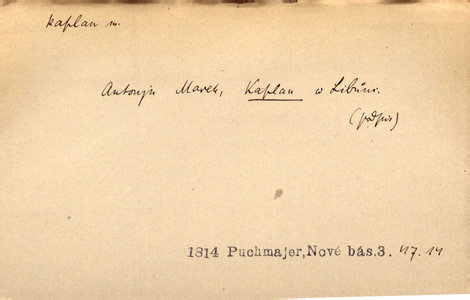 kaplan m.
Antonjn Marek, Kaplan w Libůni.
(podpis)
1814 Puchmajer, Nové bás.3. 17.14